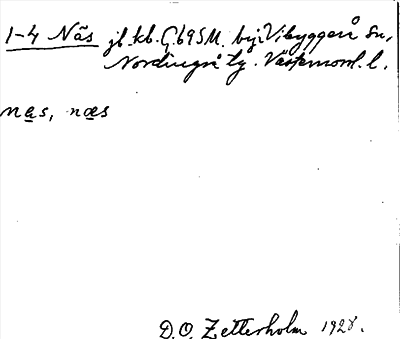 1-4 Näs jb. kb. G695M. by i Vibyggerå sn,
Nordingrå tg. Västernorrl. l.
næs, næs
D.O. Zetterholm 1928.